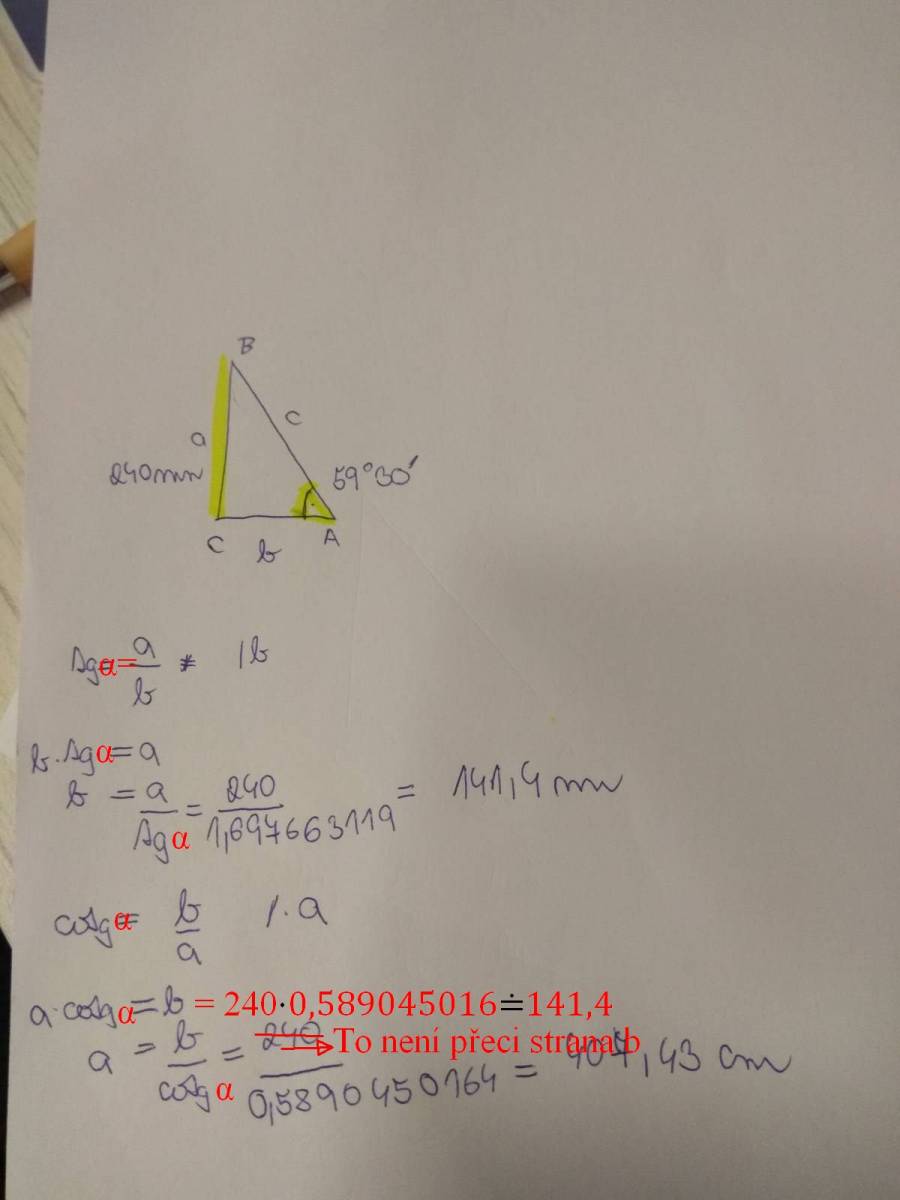 B
c
a
240mm
59°30'
C
b
A
tgα = a/b /b
b·tgα = a
b = a/tgα = 240/1,697663119 = 141,4 mm
cotgα = b/a /·a
a·cotgα = b = 240·0,589045016≐141,4
a = b/cotgα = 240/0,5890450164 = 407,43 cm
To není přeci strana b